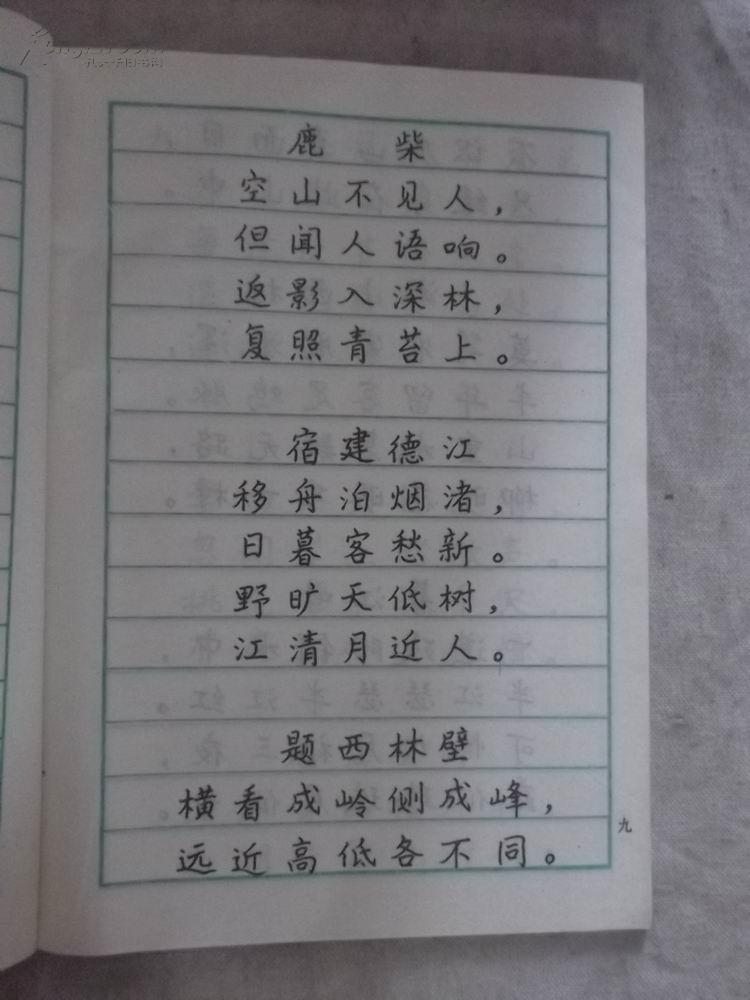 鹿柴
空山不见人，
但闻人语响。
返影入深林，
复照青苔上。
宿建德江
移舟泊烟渚，
日暮客愁新。
野旷天低树，
江清月近人。
题西林壁
横看成岭侧成峰，
远近高低各不同。
九